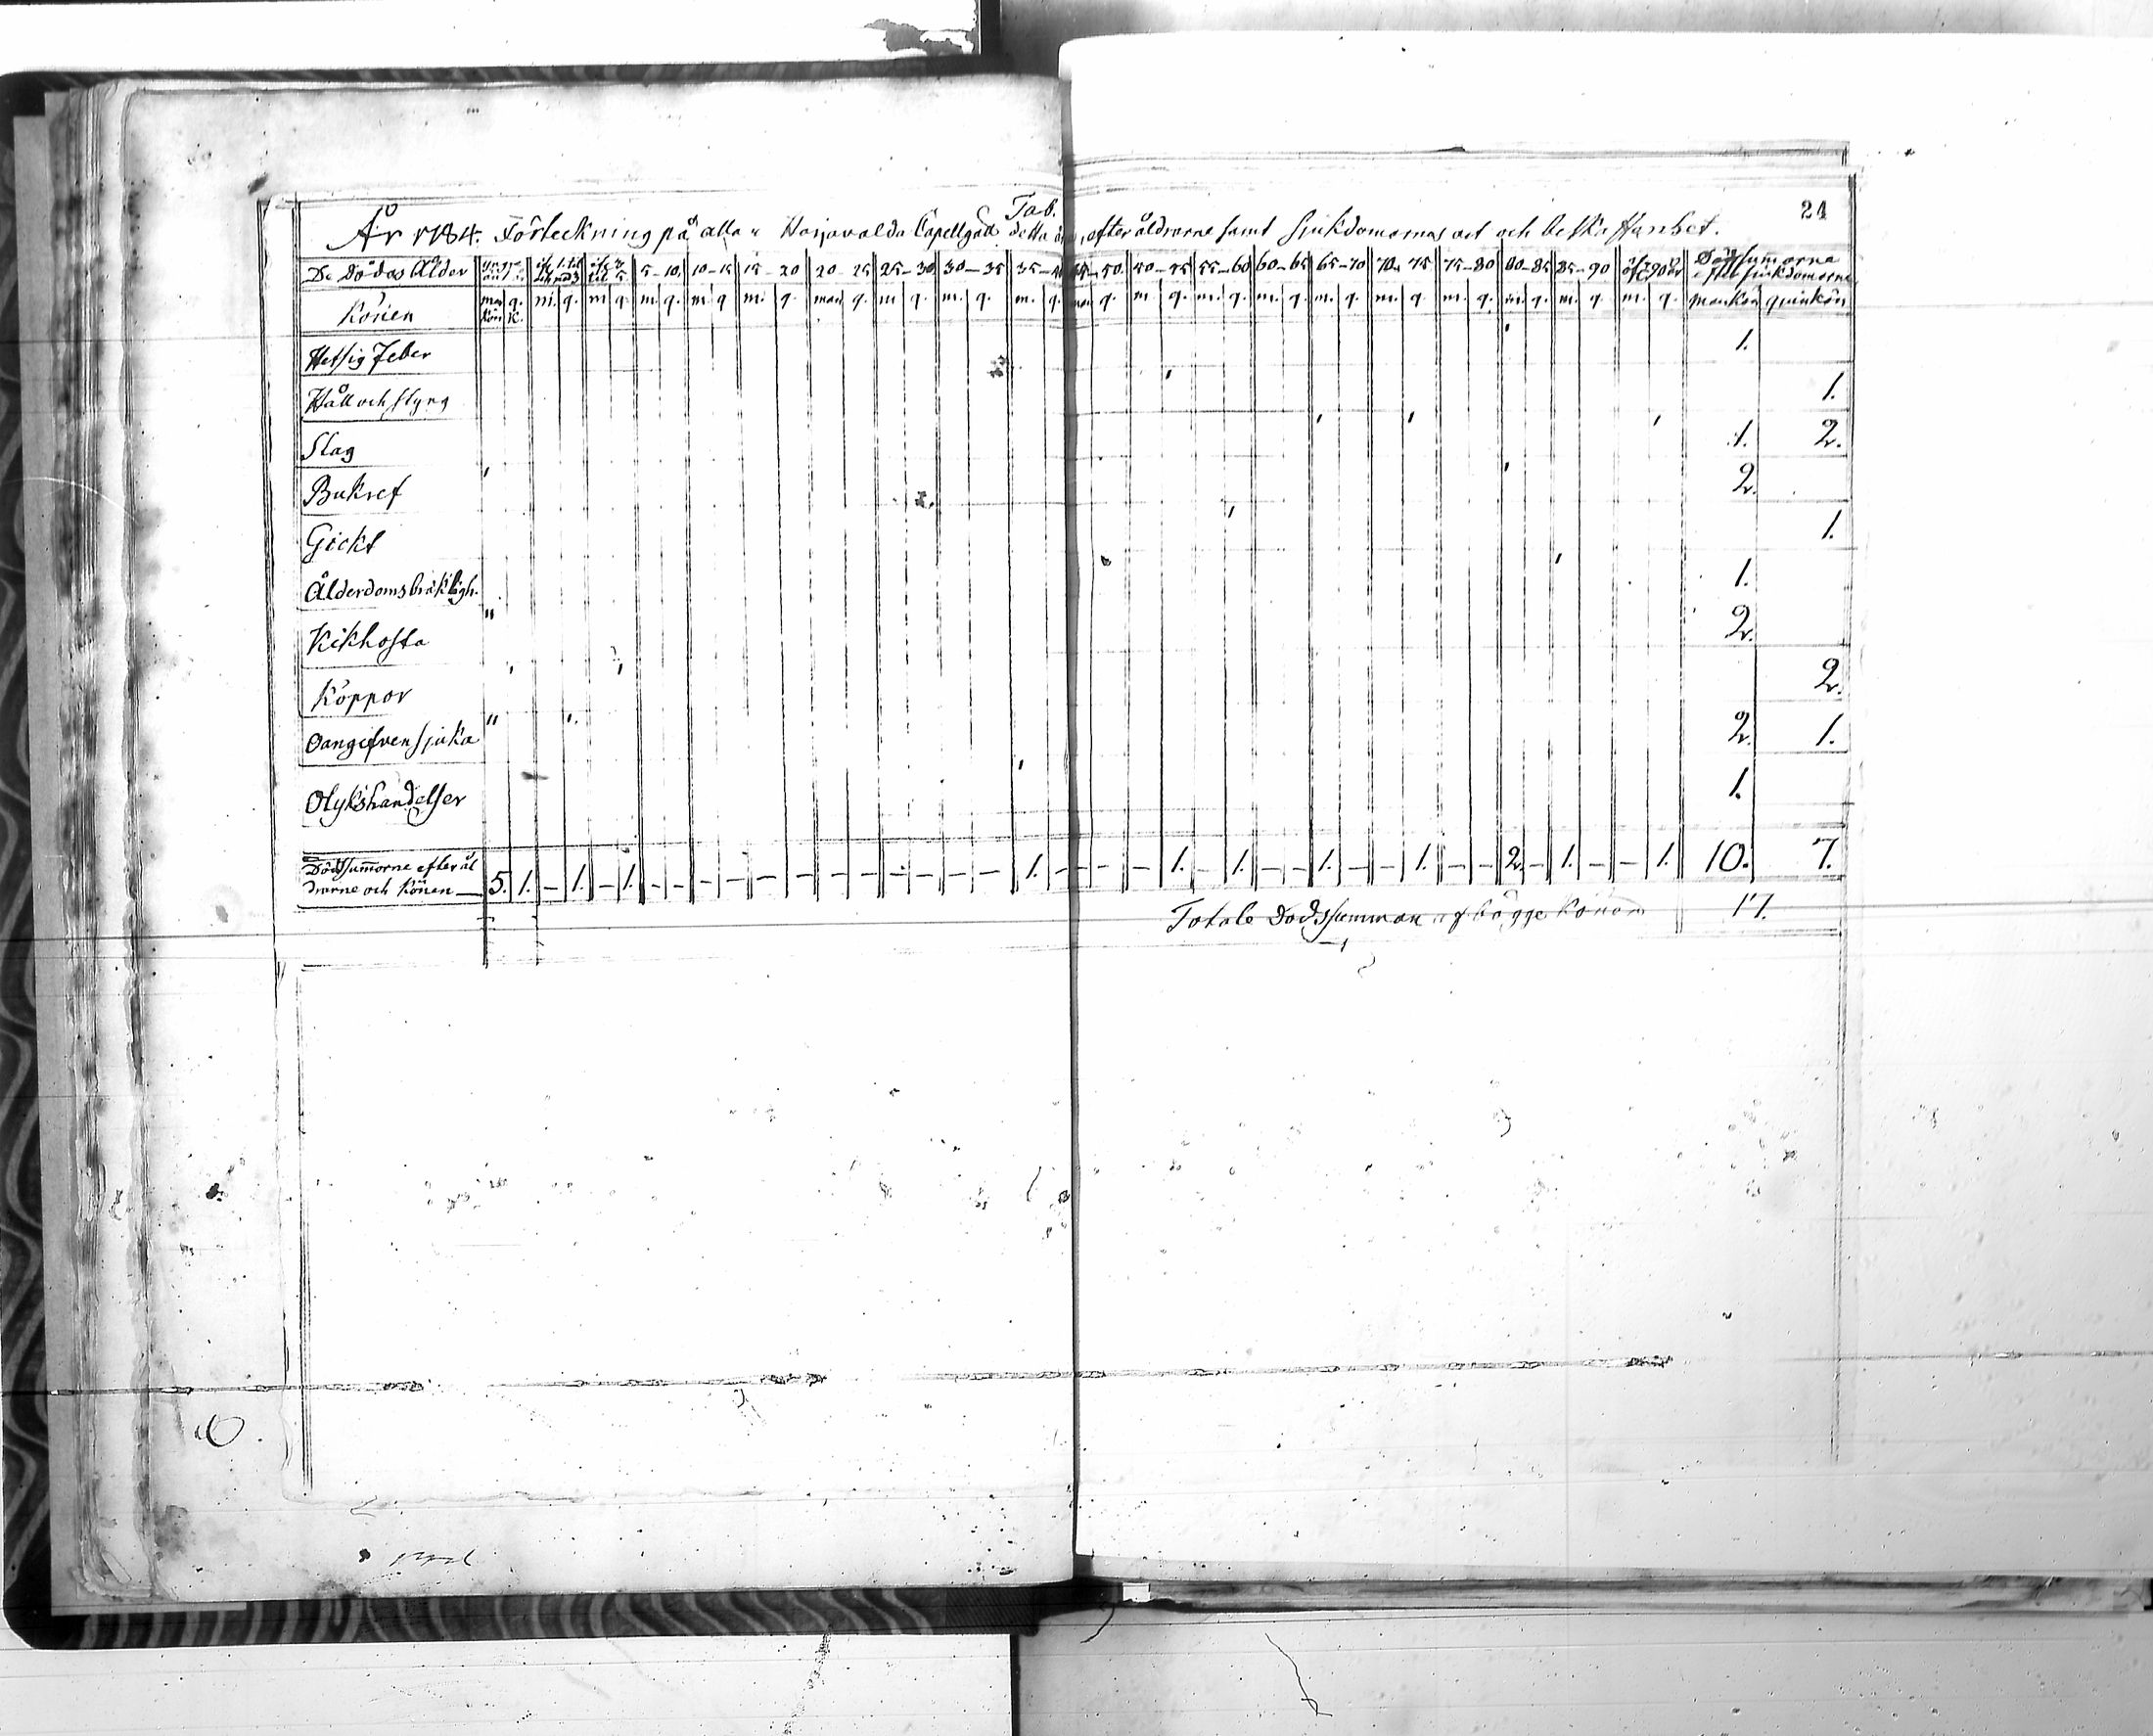 24
Tab.
År 1784. Förteckning på alla i Harjavalda Capellgäll detta år, efter åldrarne samt sjukdomarnas art och beskaffenhet.
De Dödas Ålder 5-10. 10-15 15-20 20-25 25-30 30-35 35- 50. 50-55 55-60 60-65 65-70 70-75 75-80 80-85 85-90 öfver 90 år Dödssummorne efter sjukdomarne
Könen man kön q. k. m. q. m q. m. q. m q m. q. man q. m q. m. q. m. q. man. q. m q. m. q. m. q. m. q. m. q m. q. m. q. m. q. m. q. mankön quinkön
Hetsig Feber 1.
Håll och styng 1.
Slag 1. 2.
Bukref 2.
Gickt 1.
Ålderdoms bräkligh. 1.
Kikhosta " 2.
Koppor 2.
Oangifven sjuka " 2. 1.
Olykshändelser 1.
Dödssummorne efter ål
drarne och könen — 5. 1. – 1. – 1. – – – – – – – – – – – – 1. – – – – 1. – 1. – – 1. – – 1. – – 2. – 1. – – 1. 10. 7.
Totale Dödssumman af bägge könen 17.